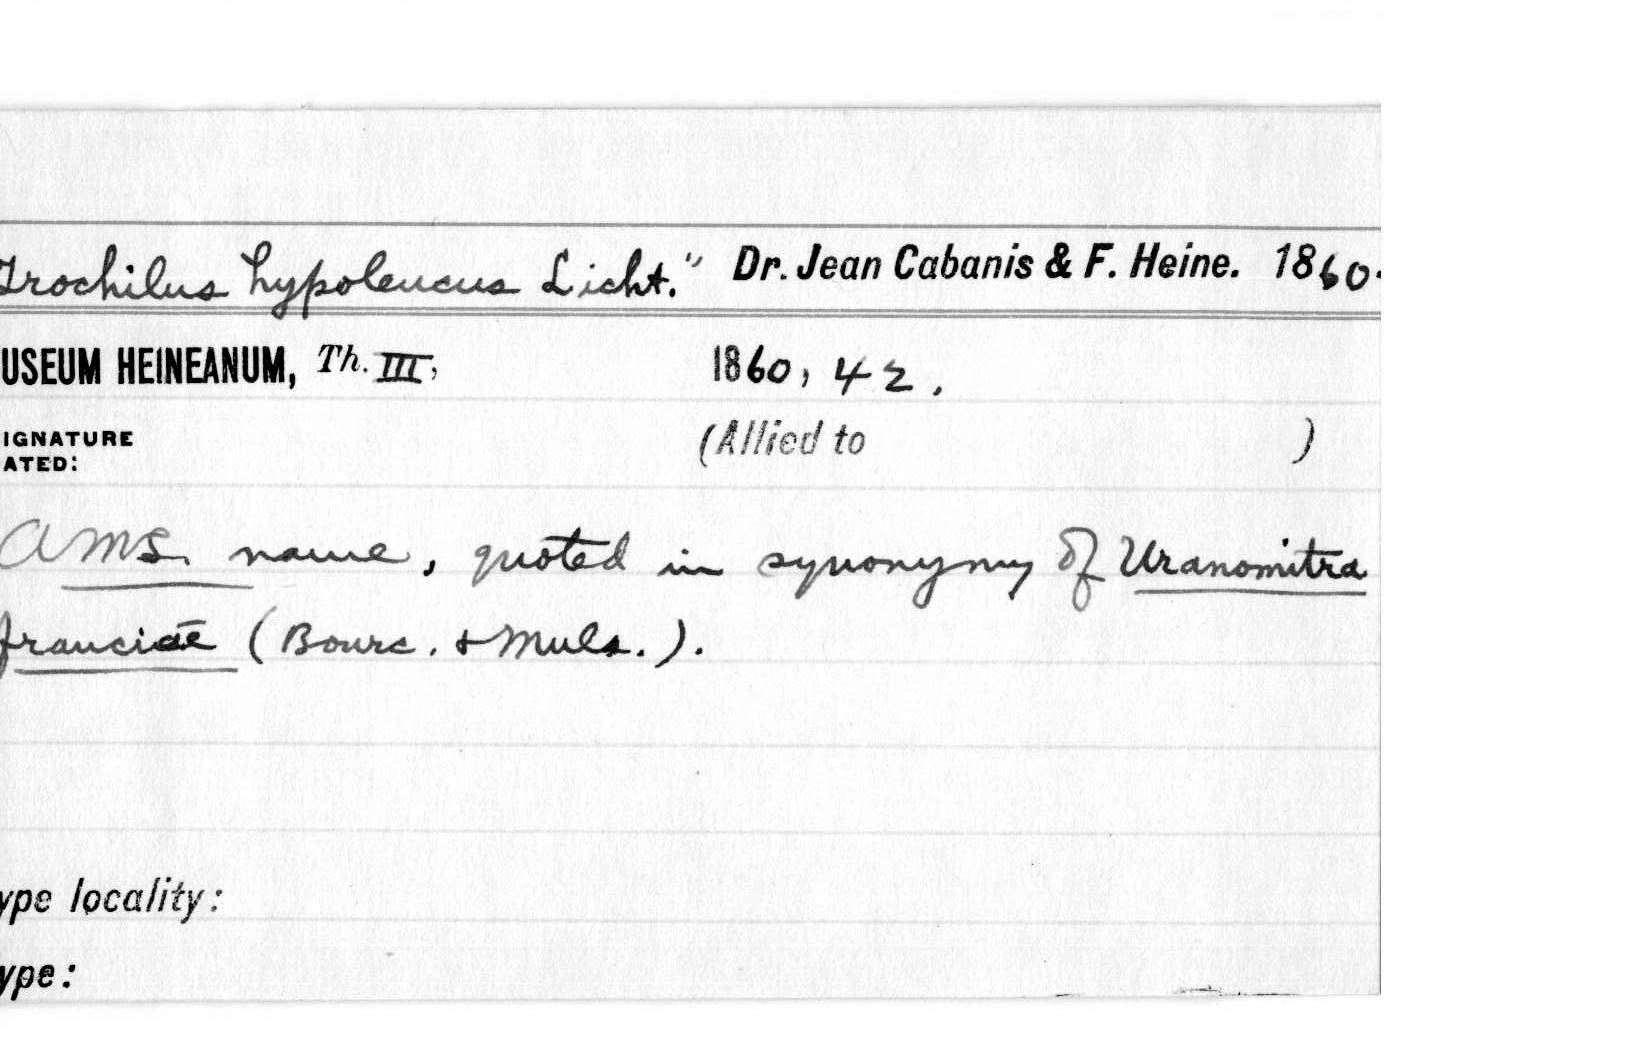 Trochilus hypoleucus Licht." Dr. Jean Cabanis & F. Heine. 1860.
USEUM HEINEANUM, Th. III, 1860, 42.
IGNATURE (Allied to )
ATED:
A MS. name, quoted in synonymy of Uranomitra
franciae (Bourc. & Muls.).
ype locality:
ype: